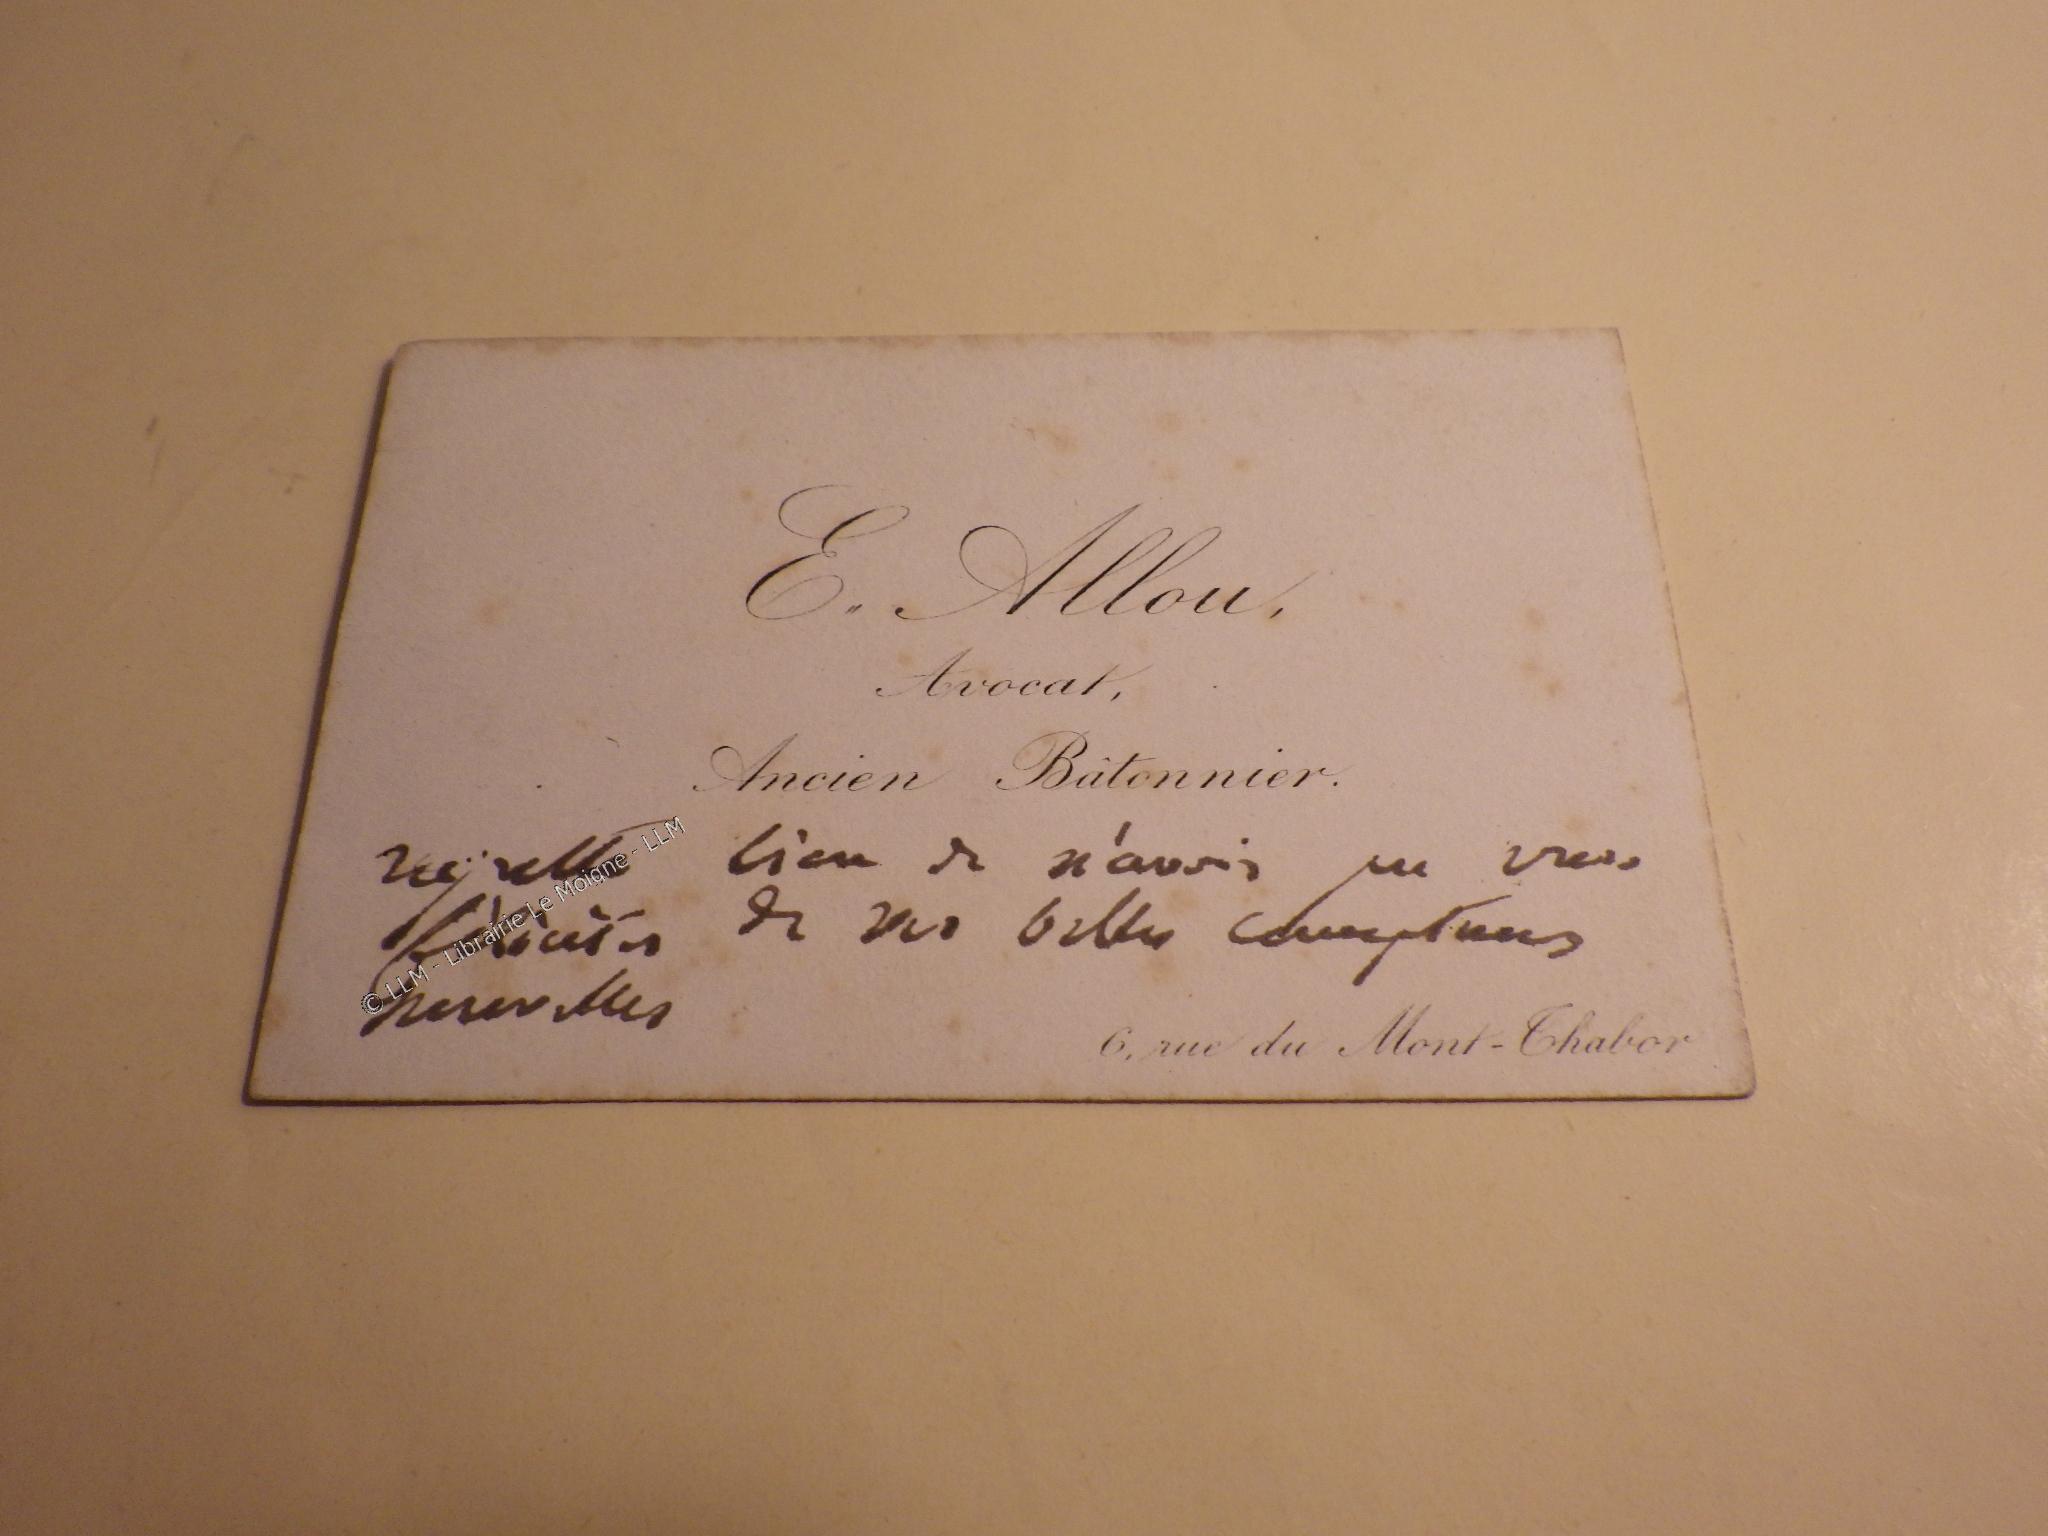 E. Allou,
Avocat,
Ancien Bâtonnier.
regrette bien de n'avoir pu vous
féliciter de vos belles
nouvelles
6, rue du Mont-Thabor
© LLM - Librairie Le Moigne - LLM